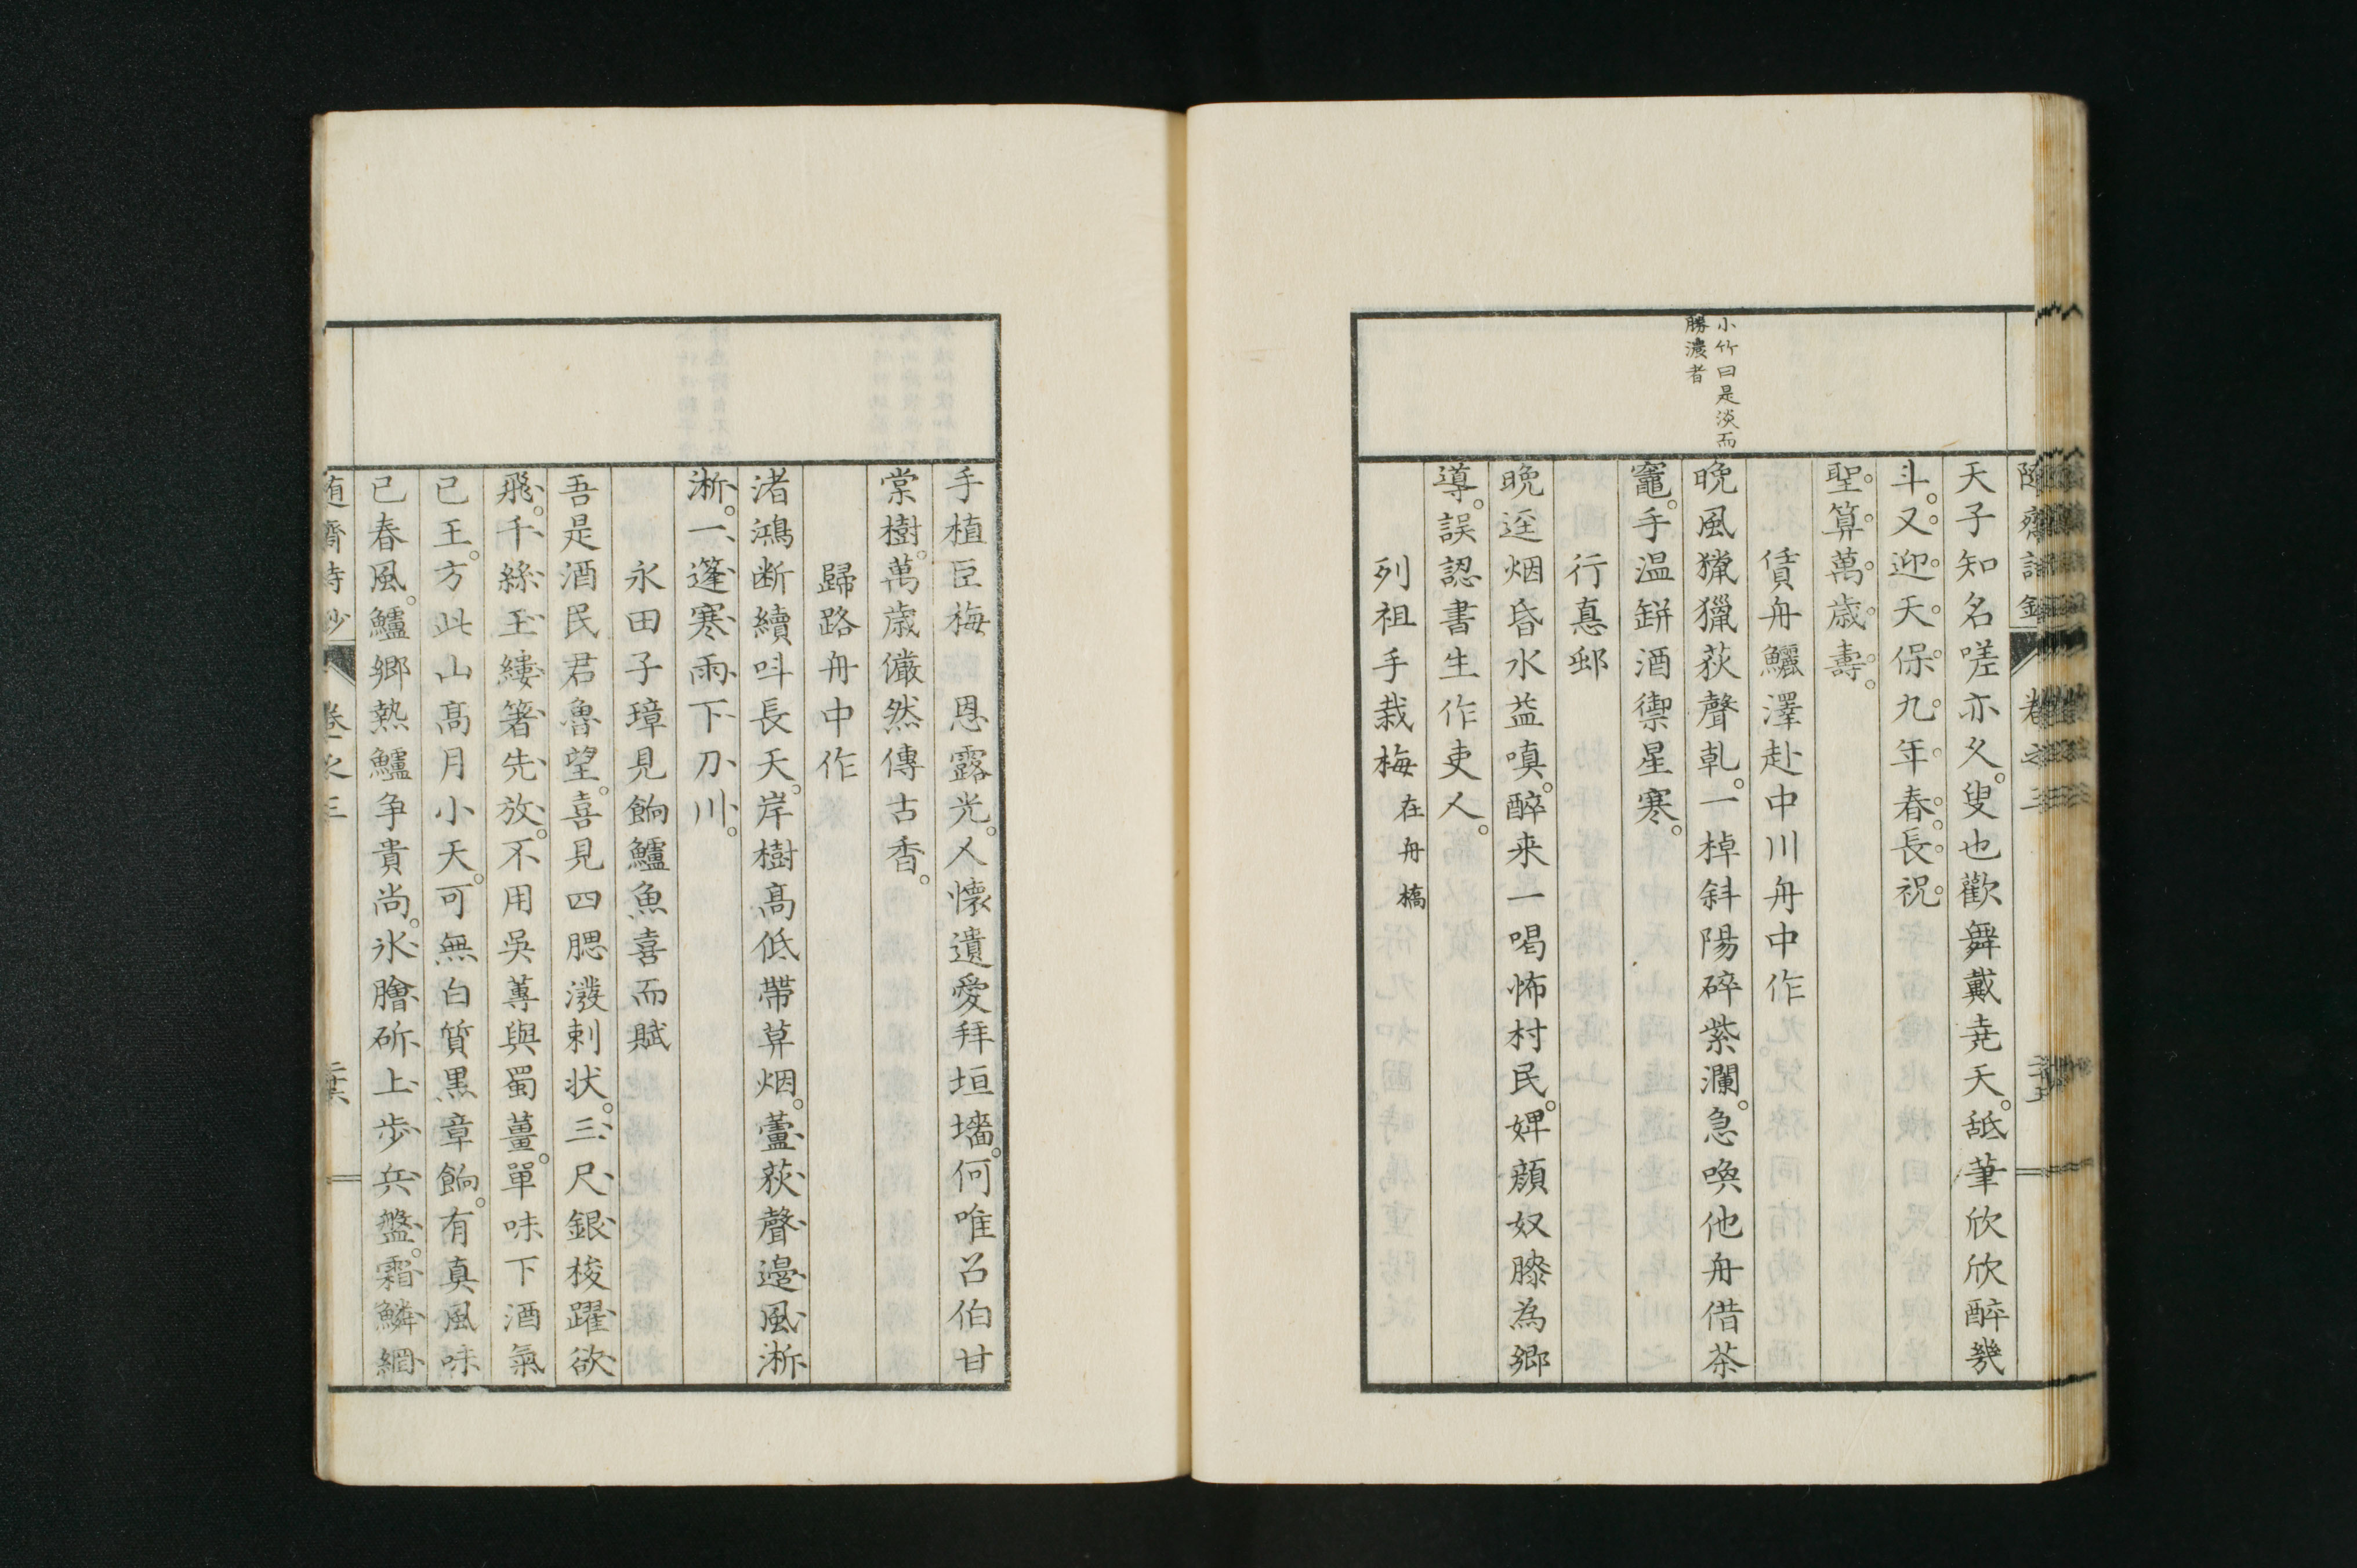 小竹曰是淡而
勝濃者
天子知名嗟亦久。叟也歡舞戴堯天。舐筆欣欣醉幾
斗。又迎天保九年春。長祝
聖算萬歳壽。
賃舟鱺澤赴中川舟中作
晩風獵獵荻聲乾。一棹斜陽碎紫瀾。急喚他舟借茶
竈。手温缾酒禦星寒。
行惪邨
晩逕烟昏水益嗔。醉来一喝怖村民。婢顔奴膝為郷
導。誤認書生作吏人。
列祖手栽梅 在舟橋
手植臣梅 恩露光。人懷遺愛拜垣墻。何唯召伯甘
棠樹。萬歳儼然傳古香。
歸路舟中作
渚鴻断續呌長天。岸樹髙低帶草烟。蘆荻聲邊風淅
淅。一篷寒雨下刀川。
永田子璋見餉鱸魚喜而賦
吾是酒民君魯望。喜見四腮潑剌状。三尺銀梭躍欲
飛。千絲玉縷箸先放。不用吳蓴與蜀薑。單味下酒氣
已王。方此山髙月小天。可無白質黒章餉。有真風味
已春風。鱸郷熱鱸争貴尚。氷膾斫上歩兵盤。霜鱗網
卷之三